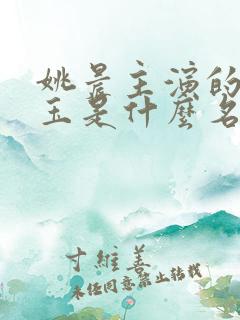 姚晨主演的
玉是什麼名
寸維善
未经同意禁止转载